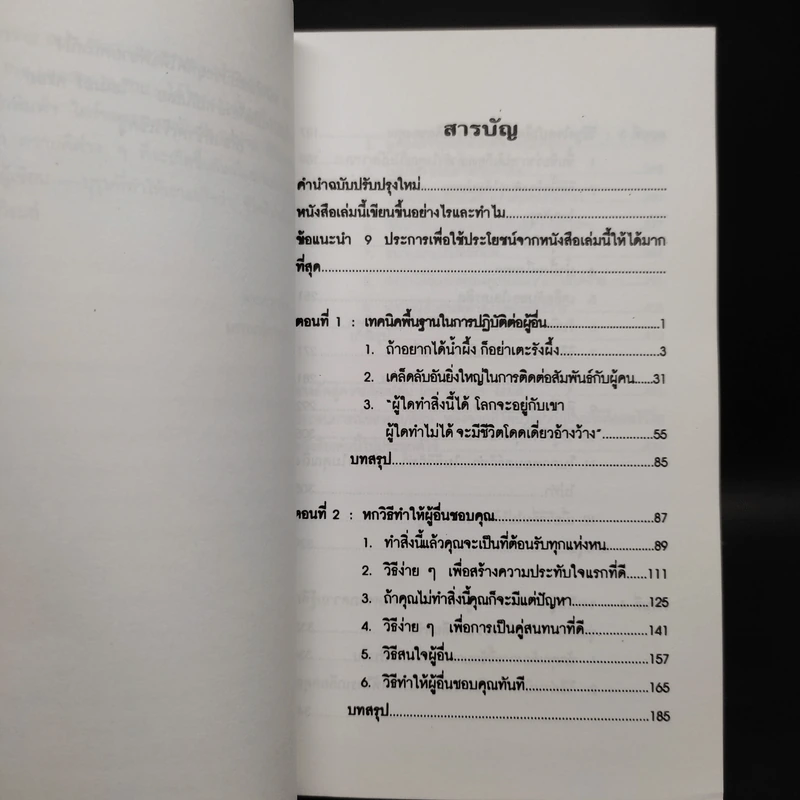 สารบัญ
คำนำฉบับปรับปรุงใหม่
หนังสือเล่มนี้เขียนขึ้นอย่างไรและทำไม
ข้อแนะนำ 9 ประการเพื่อใช้ประโยชน์จากหนังสือเล่มนี้ให้ได้มาก
ที่สุด
ตอนที่ 1 : เทคนิคพื้นฐานในการปฏิบัติต่อผู้อื่น 1
1. ถ้าอยากได้น้ำผึ้ง ก็อย่าเตะรังผึ้ง 3
2. เคล็ดลับอันยิ่งใหญ่ในการติดต่อสัมพันธ์กับผู้คน 31
3. "ผู้ใดทำสิ่งนี้ได้ โลกจะอยู่กับเขา
ผู้ใดทำไม่ได้ จะมีชีวิตโดดเดี่ยวอ้างว้าง" 55
บทสรุป 85
ตอนที่ 2 : หกวิธีทำให้ผู้อื่นชอบคุณ 87
1. ทำสิ่งนี้แล้วคุณจะเป็นที่ต้อนรับทุกแห่งหน 89
2. วิธีง่าย ๆ เพื่อสร้างความประทับใจแรกที่ดี 111
3. ถ้าคุณไม่ทำสิ่งนี้คุณก็จะมีแต่ปัญหา 125
4. วิธีง่าย ๆ เพื่อการเป็นคู่สนทนาที่ดี 141
5. วิธีสนใจผู้อื่น 157
6. วิธีทำให้ผู้อื่นชอบคุณทันที 165
บทสรุป 185